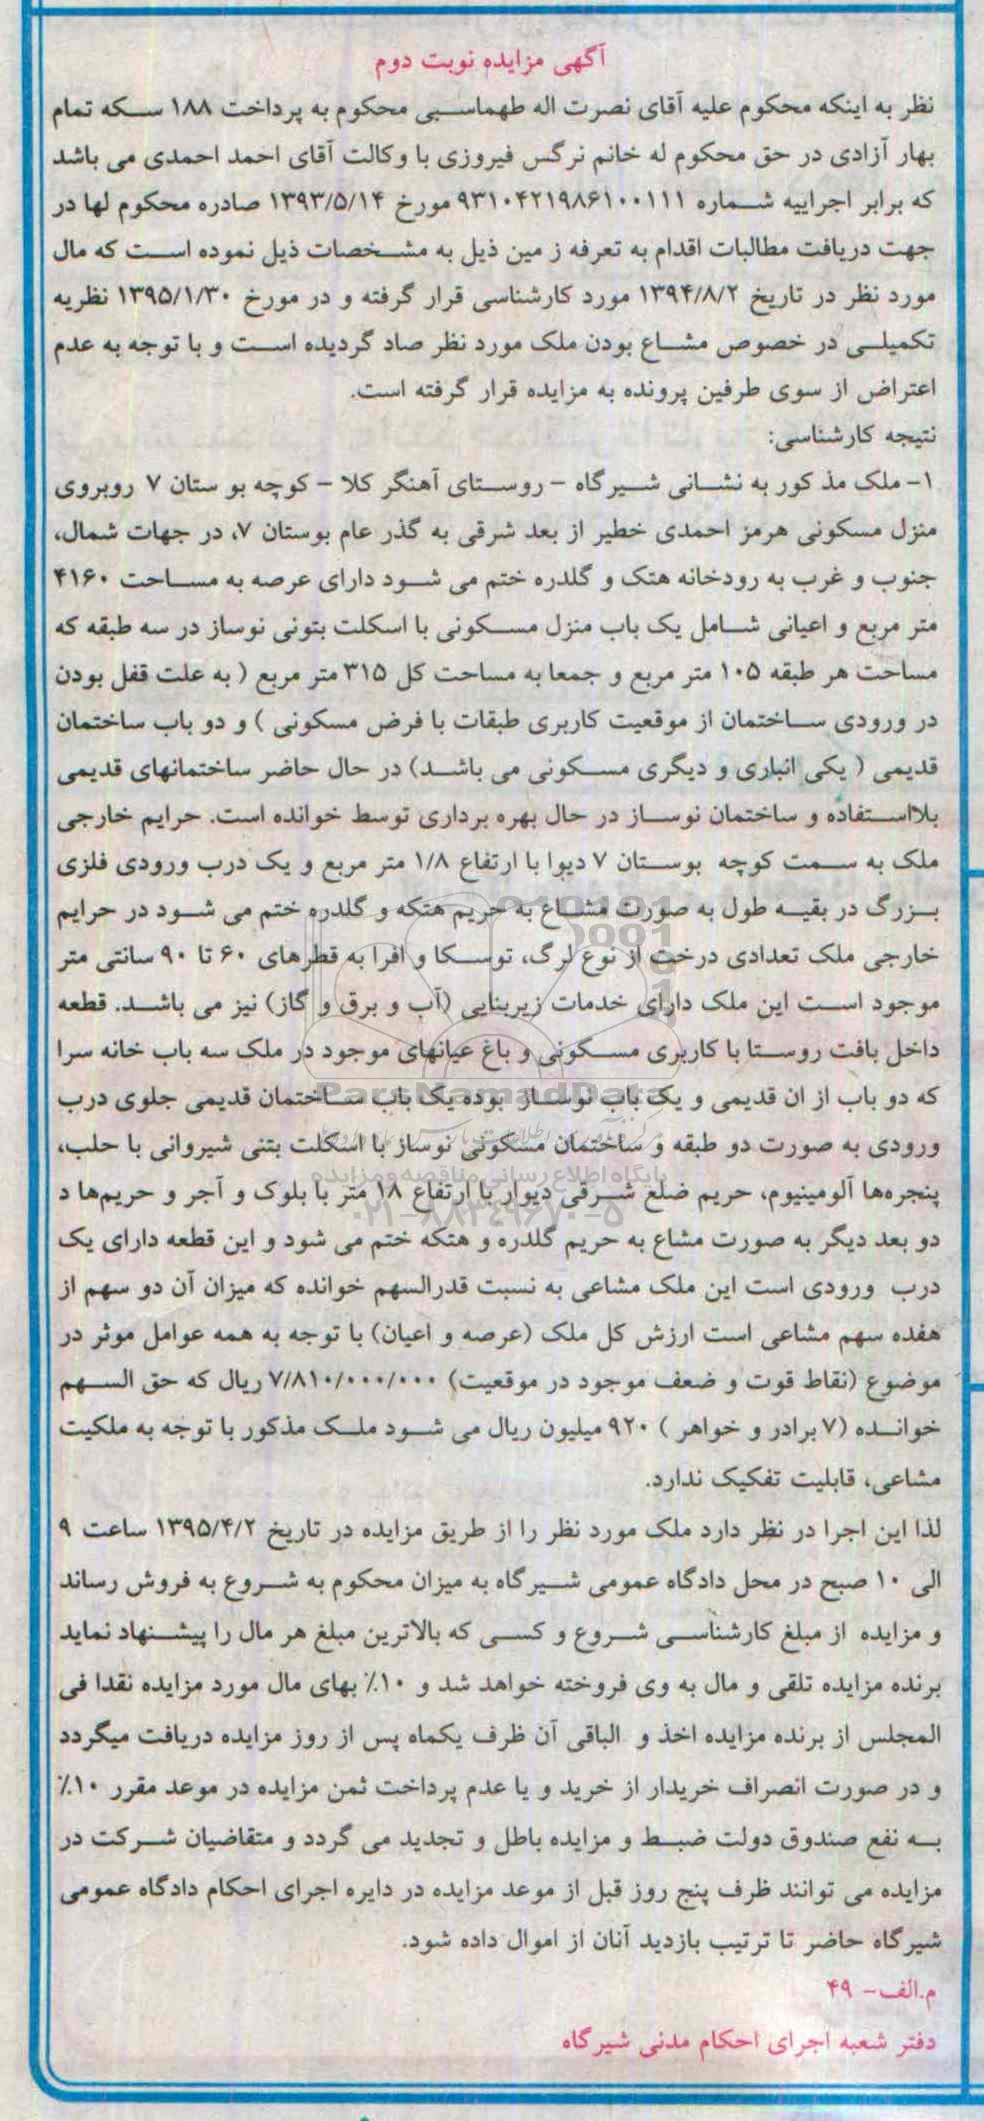 آگهی مزایده نوبت دوم
نظر به اینکه محکوم علیه آقای نصرت اله طهماسبی محکوم به پرداخت ۱۸۸ سکه تمام
بهار آزادی در حق محکوم له خانم نرگس فیروزی با وکالت آقای احمد احمدی می باشد
که برابر اجراییه شماره ۹۳۱۰۴۲۱۹۸۶۱۰۰۱۱۱ مورخ ۱۳۹۳/۵/۱۴ صادره محکوم لها در
جهت دریافت مطالبات اقدام به تعرفه ز مین ذیل به مشخصات ذیل نموده است که مال
مورد نظر در تاریخ ۱۳۹۴/۸/۲ مورد کارشناسی قرار گرفته و در مورخ ۱۳۹۵/۱/۳۰ نظریه
تکمیلی در خصوص مشاع بودن ملک مورد نظر صاد گردیده است و با توجه به عدم
اعتراض از سوی طرفین پرونده به مزایده قرار گرفته است.
نتیجه کارشناسی:
۱- ملک مذ کور به نشانی شیرگاه - روستای آهنگر کلا - کوچه بو ستان ۷ روبروی
منزل مسکونی هرمز احمدی خطیر از بعد شرقی به گذر عام بوستان ۷، در جهات شمال،
جنوب و غرب به رودخانه هتک و گلدره ختم می شود دارای عرصه به مساحت ۴۱۶۰
متر مربع و اعیانی شامل یک باب منزل مسکونی با اسکلت بتونی نوساز در سه طبقه که
مساحت هر طبقه ۱۰۵ متر مربع و جمعا به مساحت کل ۳۱۵ متر مربع ( به علت قفل بودن
در ورودی ساختمان از موقعیت کاربری طبقات با فرض مسکونی ) و دو باب ساختمان
قدیمی ( یکی انباری و دیگری مسکونی می باشد) در حال حاضر ساختمانهای قدیمی
بلااستفاده و ساختمان نوساز در حال بهره برداری توسط خوانده است. حرایم خارجی
ملک به سمت کوچه بوستان ۷ دیوا با ارتفاع ۱/۸ متر مربع و یک درب ورودی فلزی
بزرگ در بقیه طول به صورت مشاع به حریم هتکه و گلدره ختم می شود در حرایم
خارجی ملک تعدادی درخت از نوع لرگ، توسکا و افرا به قطرهای ۶۰ تا ۹۰ سانتی متر
موجود است این ملک دارای خدمات زیربنایی (آب و برق و گاز) نیز می باشد. قطعه
داخل بافت روستا با کاربری مسکونی و باغ عیانهای موجود در ملک سه باب خانه سرا
ParsNamadData
که دو باب از ان قدیمی و یک باب نوساز بوده یک باب ساختمان قدیمی جلوی درب
ورودی به صورت دو طبقه و ساختمان مسکونی نوساز با اسکلت بتنی شیروانی با حلب،
پایگاه اطلاع رسانی مناقصه و مزایده
پنجره‌ها آلومینیوم، حریم ضلع شرقی دیوار با ارتفاع ۱۸ متر با بلوک و آجر و حریم‌ها د
۰۲۱-۸۸۳۴۹۶۷۰-۵
دو بعد دیگر به صورت مشاع به حریم گلدره و هتکه ختم می شود و این قطعه دارای یک
درب ورودی است این ملک مشاعی به نسبت قدرالسهم خوانده که میزان آن دو سهم از
هفده سهم مشاعی است ارزش کل ملک (عرصه و اعیان) با توجه به همه عوامل موثر در
موضوع (نقاط قوت و ضعف موجود در موقعیت) ۷/۸۱۰/۰۰۰/۰۰۰ ریال که حق السهم
خوانده (۷ برادر و خواهر ) ۹۲۰ میلیون ریال می شود ملک مذکور با توجه به ملکیت
مشاعی، قابلیت تفکیک ندارد.
لذا این اجرا در نظر دارد ملک مورد نظر را از طریق مزایده در تاریخ ۱۳۹۵/۴/۲ ساعت ۹
الی ۱۰ صبح در محل دادگاه عمومی شیرگاه به میزان محکوم به شروع به فروش رساند
و مزایده از مبلغ کارشناسی شروع و کسی که بالاترین مبلغ هر مال را پیشنهاد نماید
برنده مزایده تلقی و مال به وی فروخته خواهد شد و ۱۰٪ بهای مال مورد مزایده نقدا فی
المجلس از برنده مزایده اخذ و الباقی آن ظرف یکماه پس از روز مزایده دریافت میگردد
و در صورت انصراف خریدار از خرید و یا عدم پرداخت ثمن مزایده در موعد مقرر ۱۰٪
به نفع صندوق دولت ضبط و مزایده باطل و تجدید می گردد و متقاضیان شرکت در
مزایده می توانند ظرف پنج روز قبل از موعد مزایده در دایره اجرای احکام دادگاه عمومی
شیرگاه حاضر تا ترتیب بازدید آنان از اموال داده شود.
م.الف- ۴۹
دفتر شعبه اجرای احکام مدنی شیرگاه